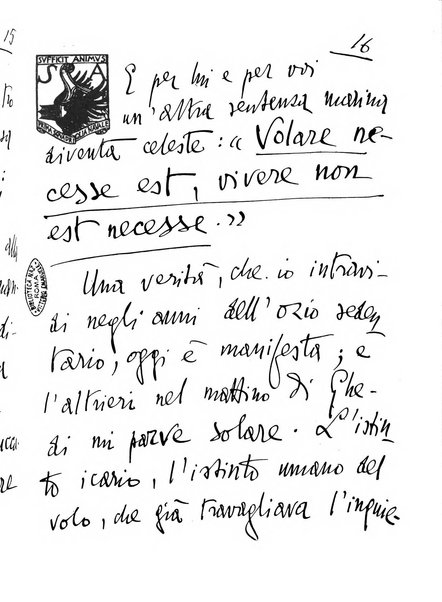 15
16
SVFFICIT ANIMVS
E per lui e per voi
un'altra sentenza marina
diventa celeste: « Volare ne-
cesse est, vivere non
est necesse. »
Una verità, che io intravi-
di negli anni dell'ozio seden
tario, oggi è manifesta; e
l'altrieri nel mattino di Ghe-
di mi parve solare. L'istin
to icario, l'istinto umano del
volo, che già travagliava l'inquie-